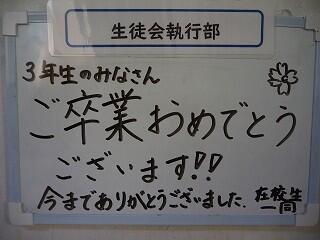 生徒会執行部
3年生のみなさん
ご卒業おめでとう
ございます!!
今までありがとうございました.
在校生
一同